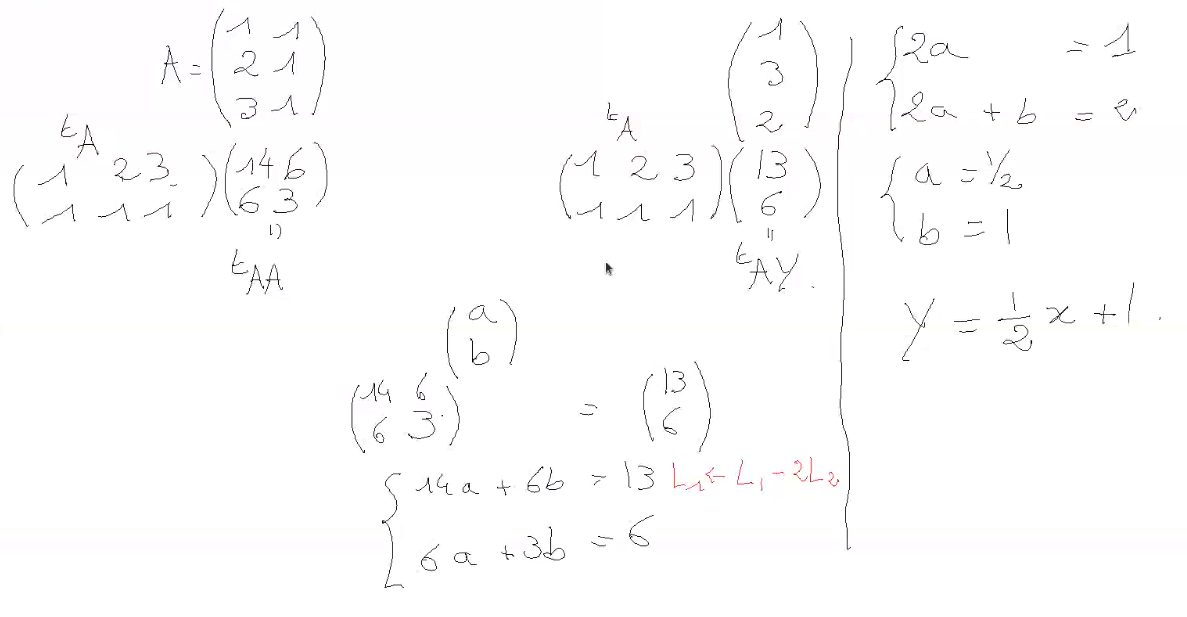 A = ( 1 1
2 1
3 1 )
ᵗA
( 1 2 3
1 1 1 ) ( 14 6
6 3 )
||
ᵗAA
( 1
3
2 )
ᵗA
( 1 2 3
1 1 1 ) ( 13
6 )
||
ᵗAY.
( a
b )
( 14 6
6 3 ) = ( 13
6 )
{ 14a + 6b = 13 L₁ ← L₁ - 2L₂
6a + 3b = 6
{ 2a = 1
2a + b = 2
{ a = 1/2
b = 1
y = 1/2 x + 1.